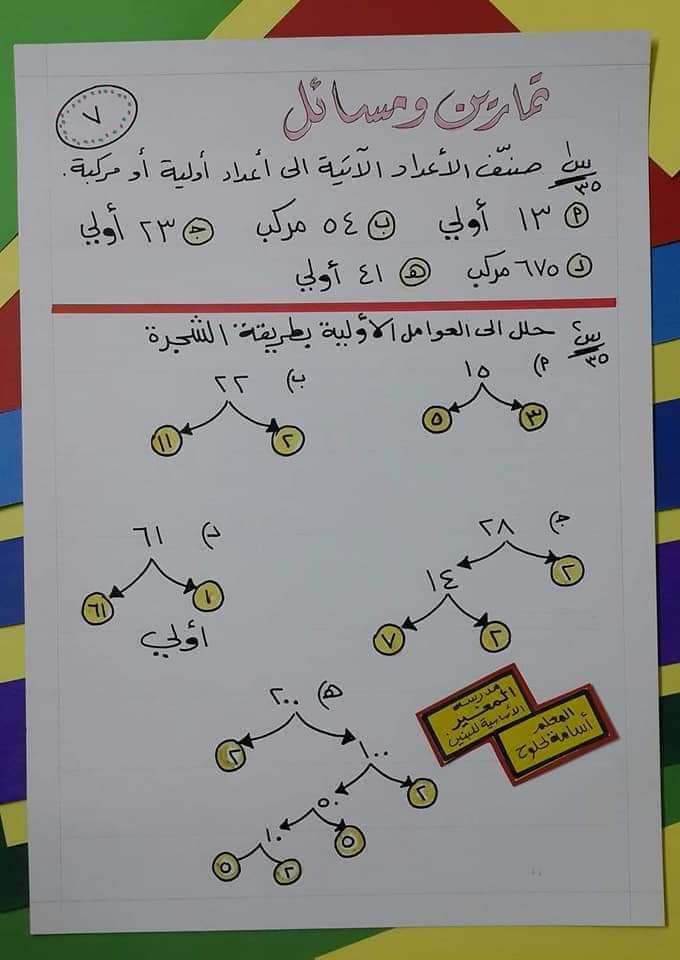 ٧
تمارين ومسائل
س١ صنّف الأعداد الآتية الى أعداد أولية أو مركبة.
٣٥
أ ١٣ أولي ب ٥٤ مركب ج ٢٣ أولي
د ٦٧٥ مركب هـ ٤١ أولي
س٢ حلل الى العوامل الأولية بطريقة الشجرة
٣٥
أ) ١٥
٣ ٥
ب) ٢٢
٢ ١١
ج) ٢٨
٢ ١٤
٢ ٧
د) ٦١
١ ٦١
أولي
هـ) ٢٠٠
١٠٠ ٢
٢ ٥٠
٥ ١٠
٢ ٥
مدرسة
المغير
الأساسية للبنين
المعلم
أسامة لحلوح